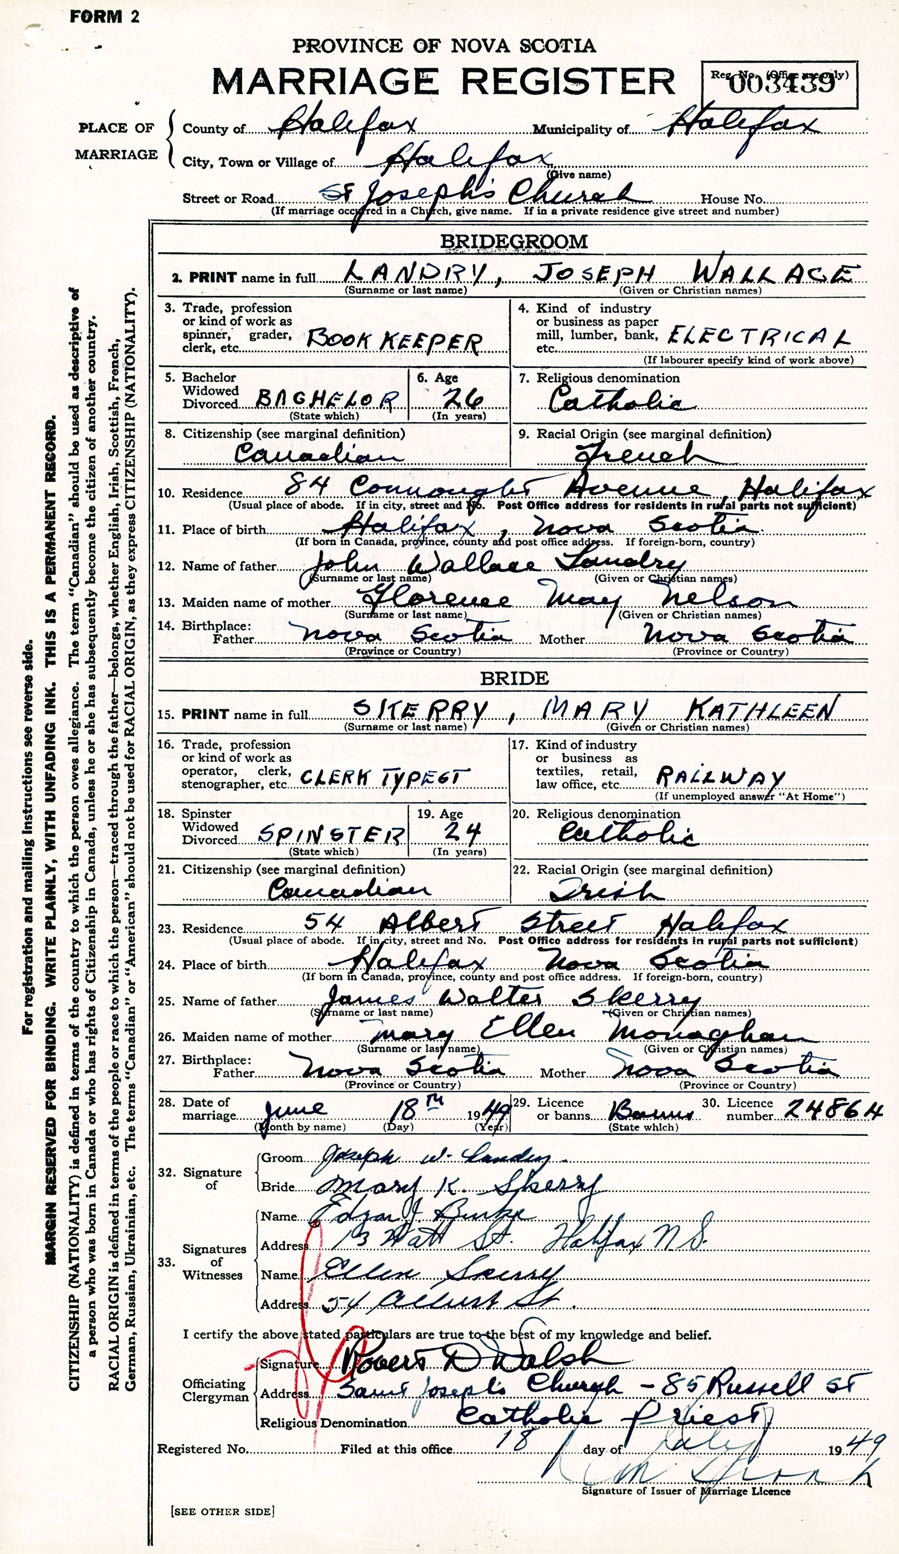 FORM 2
PROVINCE OF NOVA SCOTIA
MARRIAGE REGISTER
Reg. No. (Office use only)
003439
PLACE OF MARRIAGE
County of Halifax Municipality of Halifax
City, Town or Village of Halifax
(Give name)
Street or Road St Joseph's Church House No.
(If marriage occurred in a Church, give name. If in a private residence give street and number)
BRIDEGROOM
2. PRINT name in full LANDRY, JOSEPH WALLACE
(Surname or last name) (Given or Christian names)
3. Trade, profession or kind of work as spinner, grader, clerk, etc. BOOK KEEPER
4. Kind of industry or business as paper mill, lumber, bank, etc. ELECTRICAL
(If labourer specify kind of work above)
5. Bachelor Widowed Divorced BACHELOR
(State which)
6. Age 26
(In years)
7. Religious denomination
Catholic
8. Citizenship (see marginal definition)
Canadian
9. Racial Origin (see marginal definition)
French
10. Residence 84 Connought Avenue, Halifax
(Usual place of abode. If in city, street and No. Post Office address for residents in rural parts not sufficient)
11. Place of birth Halifax, Nova Scotia
(If born in Canada, province, county and post office address. If foreign-born, country)
12. Name of father John Wallace Landry
(Surname or last name) (Given or Christian names)
13. Maiden name of mother Florence May Nelson
(Surname or last name) (Given or Christian names)
14. Birthplace: Father Nova Scotia Mother Nova Scotia
(Province or Country) (Province or Country)
BRIDE
15. PRINT name in full SKERRY, MARY KATHLEEN
(Surname or last name) (Given or Christian names)
16. Trade, profession or kind of work as operator, clerk, stenographer, etc. CLERK TYPEST
17. Kind of industry or business as textiles, retail, law office, etc. RAILWAY
(If unemployed answer "At Home")
18. Spinster Widowed Divorced SPINSTER
(State which)
19. Age 24
(In years)
20. Religious denomination
Catholic
21. Citizenship (see marginal definition)
Canadian
22. Racial Origin (see marginal definition)
Irish
23. Residence 54 Albert Street Halifax
(Usual place of abode. If in city, street and No. Post Office address for residents in rural parts not sufficient)
24. Place of birth Halifax Nova Scotia
(If born in Canada, province, county and post office address. If foreign-born, country)
25. Name of father James Walter Skerry
(Surname or last name) (Given or Christian names)
26. Maiden name of mother Mary Ellen Monaghan
(Surname or last name) (Given or Christian names)
27. Birthplace: Father Nova Scotia Mother Nova Scotia
(Province or Country) (Province or Country)
28. Date of marriage June 18th 1949
(Month by name) (Day) (Year)
29. Licence or banns Banns
(State which)
30. Licence number 24864
32. Signature of
Groom Joseph W. Landry.
Bride Mary K. Skerry
33. Signatures of Witnesses
Name Edgar J Burke
Address 13 Watt St. Halifax N.S.
Name Ellen Skerry
Address 54 Albert St.
I certify the above stated particulars are true to the best of my knowledge and belief.
Officiating Clergyman
Signature Robert D Walsh
Address Saint Joseph's Church - 85 Russell St
Religious Denomination Catholic Priest
Registered No. Filed at this office 18 day of July 1949
Signature of Issuer of Marriage Licence
[SEE OTHER SIDE]
For registration and mailing instructions see reverse side.
MARGIN RESERVED FOR BINDING. WRITE PLAINLY, WITH UNFADING INK. THIS IS A PERMANENT RECORD.
CITIZENSHIP (NATIONALITY) is defined in terms of the country to which the person owes allegiance. The term "Canadian" should be used as descriptive of
a person who was born in Canada or who has rights of Citizenship in Canada, unless he or she has subsequently become the citizen of another country.
RACIAL ORIGIN is defined in terms of the people or race to which the person—traced through the father—belongs, whether English, Irish, Scottish, French,
German, Russian, Ukrainian, etc. The terms "Canadian" or "American" should not be used for RACIAL ORIGIN, as they express CITIZENSHIP (NATIONALITY).